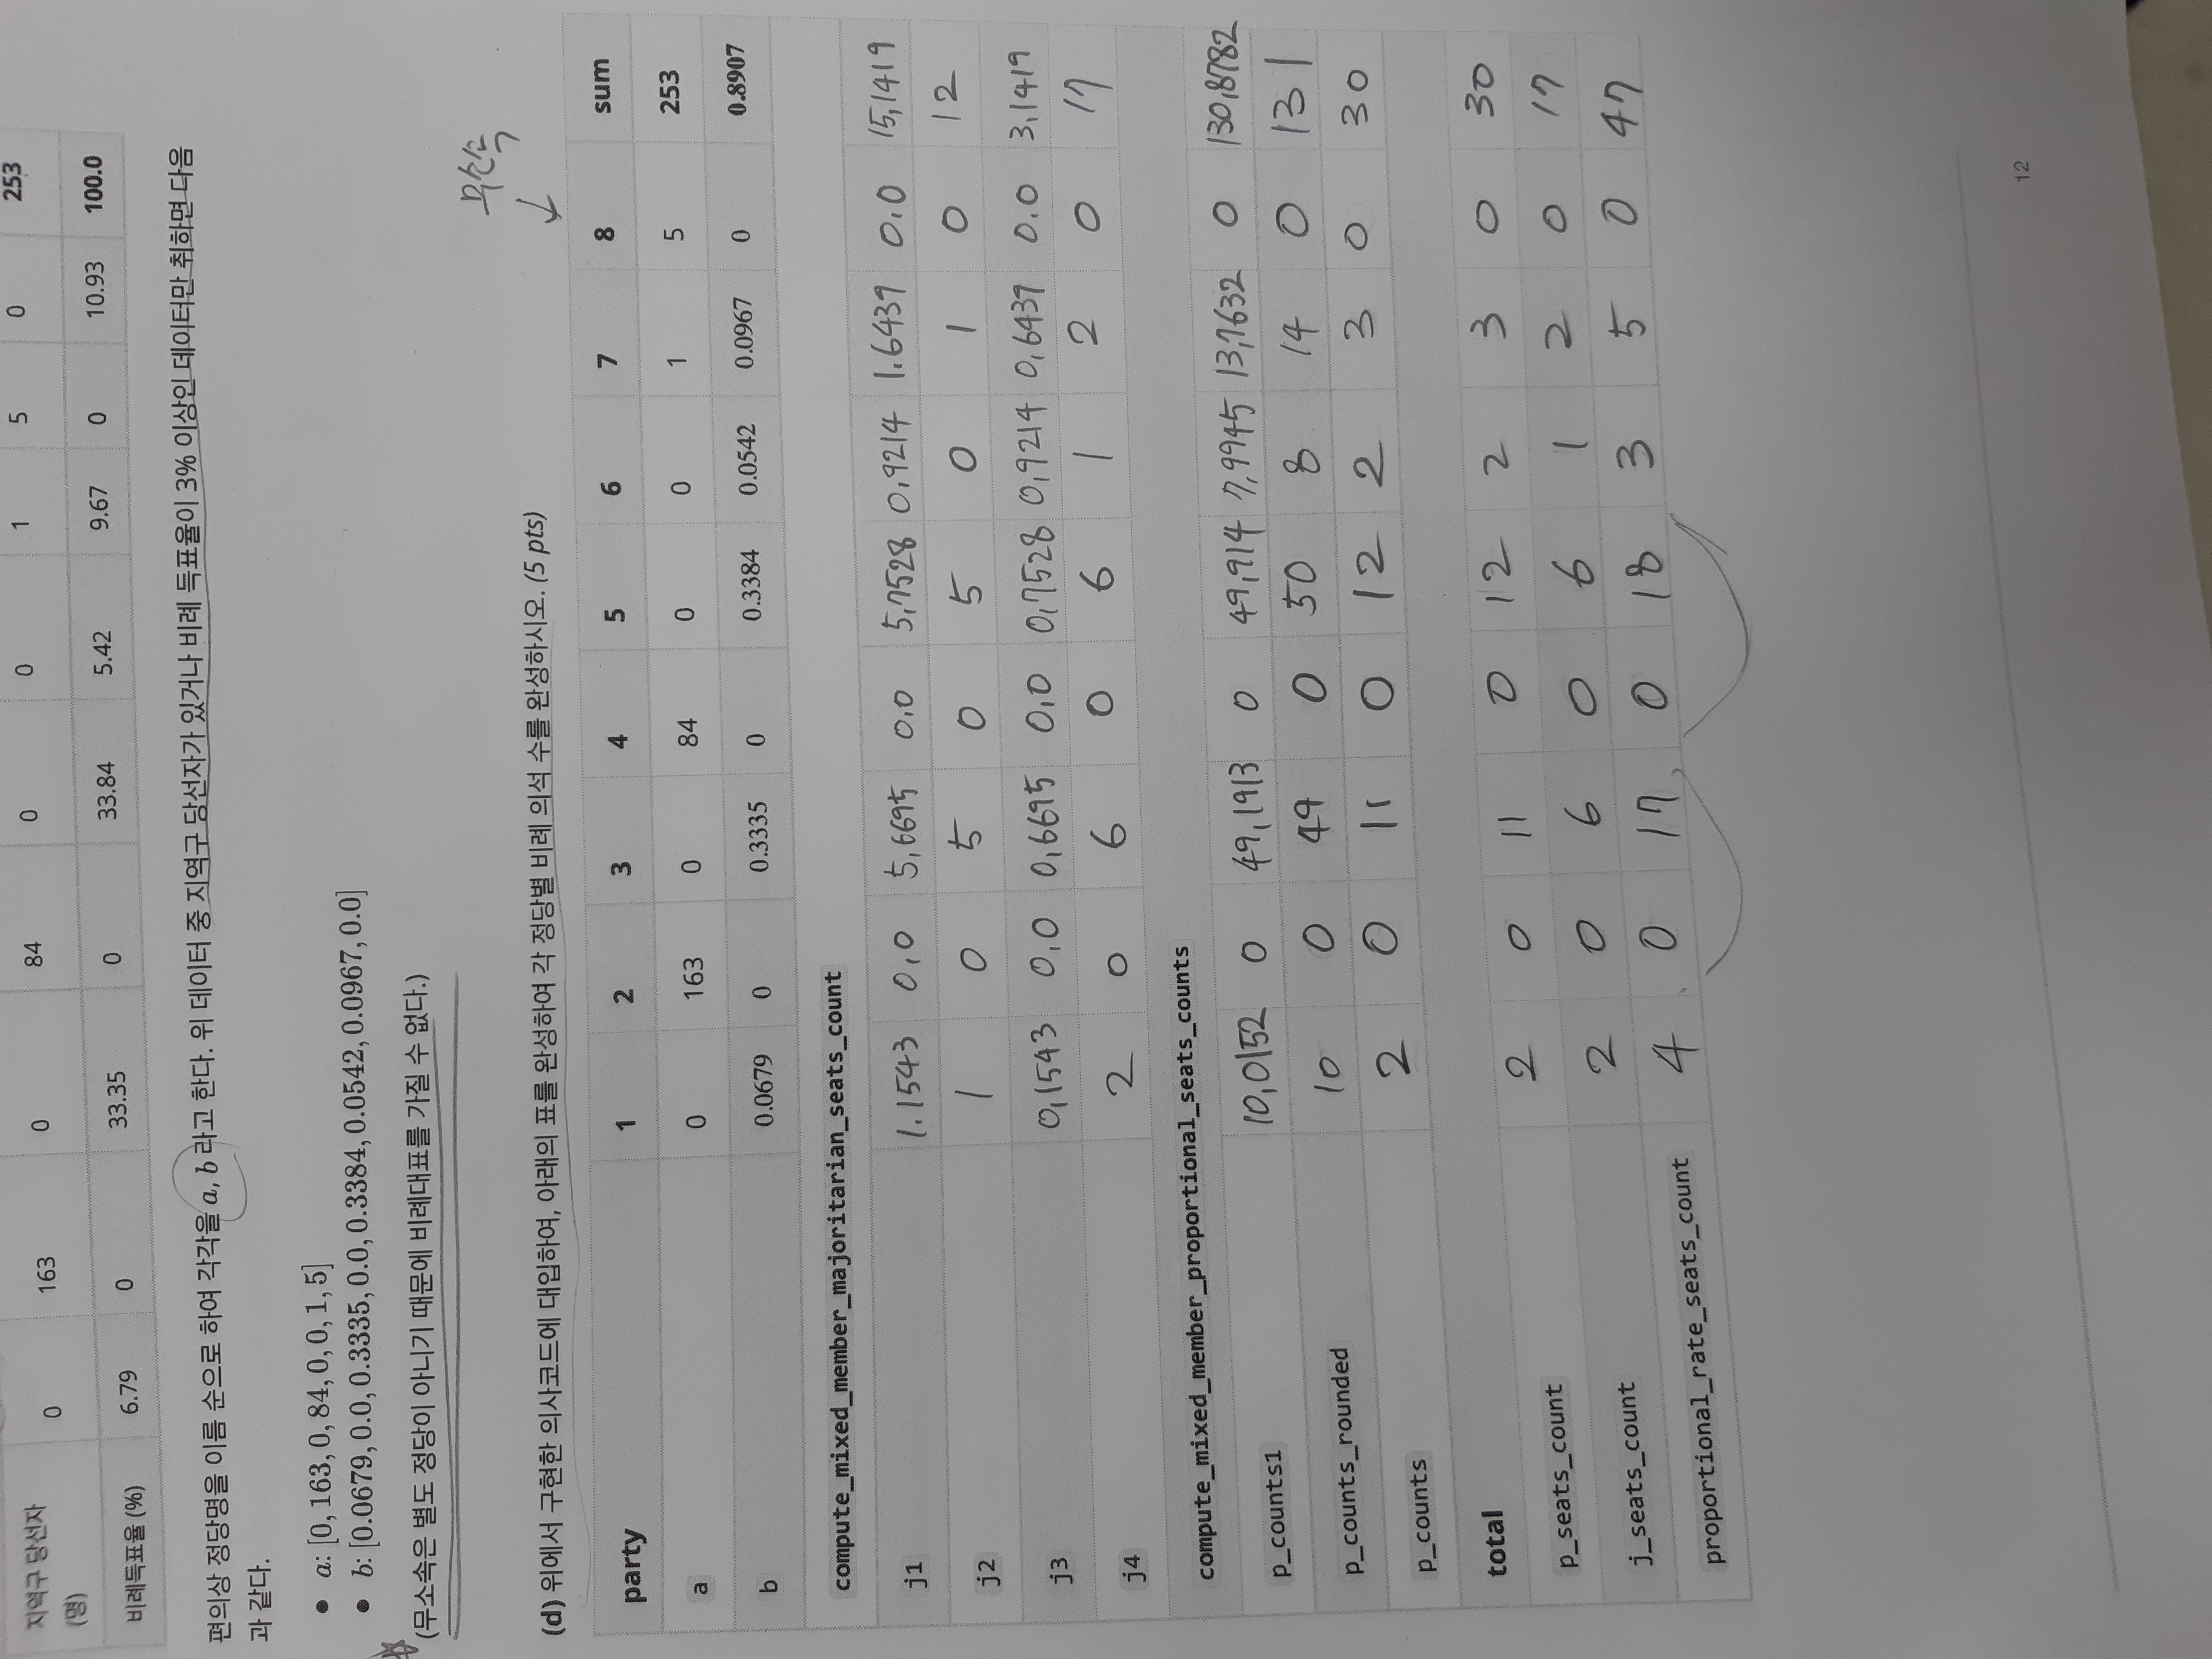 지역구 당선자 (명) 0 163 0 84 0 0 1 5 0 253
비례득표율 (%) 6.79 0 33.35 0 33.84 5.42 9.67 0 10.93 100.0
편의상 정당명을 이름 순으로 하여 각각을 a, b 라고 한다. 위 데이터 중 지역구 당선자가 있거나 비례 득표율이 3% 이상인 데이터만 취하면 다음
과 같다.
• a: [0, 163, 0, 84, 0, 0, 1, 5]
• b: [0.0679, 0.0, 0.3335, 0.0, 0.3384, 0.0542, 0.0967, 0.0]
(무소속은 별도 정당이 아니기 때문에 비례대표를 가질 수 없다.)
무소속
(d) 위에서 구현한 의사코드에 대입하여, 아래의 표를 완성하여 각 정당별 비례 의석 수를 완성하시오. (5 pts)
party 1 2 3 4 5 6 7 8 sum
a 0 163 0 84 0 0 1 5 253
b 0.0679 0 0.3335 0 0.3384 0.0542 0.0967 0 0.8907
compute_mixed_member_majoritarian_seats_count
j1 1.1543 0,0 5,6695 0.0 5,7528 0,9214 1.6439 0.0 15,1419
j2 1 0 5 0 5 0 1 0 12
j3 0,1543 0,0 0,6695 0,0 0,7528 0,9214 0,6439 0.0 3,1419
j4 2 0 6 0 6 1 2 0 17
compute_mixed_member_proportional_seats_counts
p_counts1 10,0152 0 49,1913 0 49,914 7,9945 13,7632 0 130,8782
p_counts_rounded 10 0 49 0 50 8 14 0 131
p_counts 2 0 11 0 12 2 3 0 30
total
p_seats_count 2 0 11 0 12 2 3 0 30
j_seats_count 2 0 6 0 6 1 2 0 17
proportional_rate_seats_count 4 0 17 0 18 3 5 0 47
12